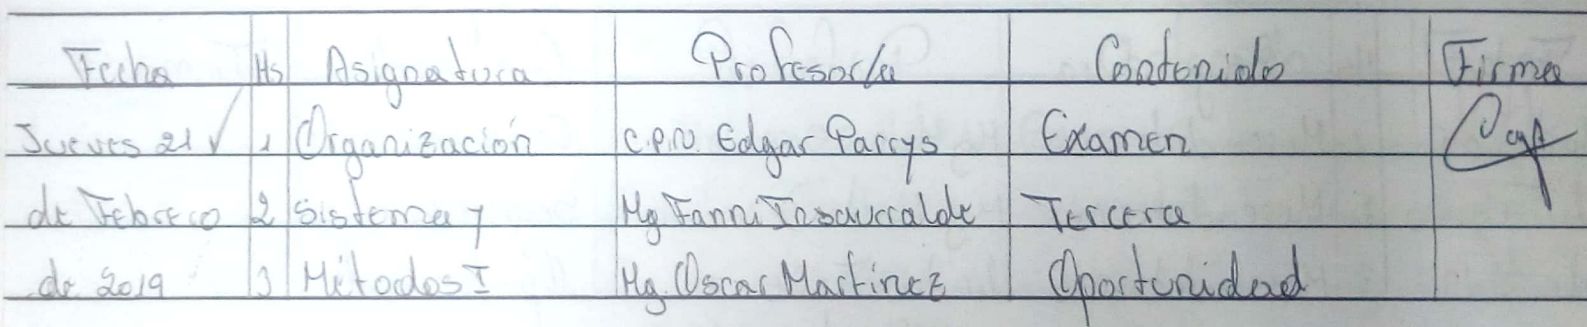 Fecha Hs Asignatura Profesor/a Contenido Firma
Jueves 21 1 Organización C.P.N. Edgar Parrys Examen
de Febrero 2 Sistema y Mg Fanni Insaurralde Tercera
de 2019 3 Métodos I Mg. Oscar Martinez Oportunidad